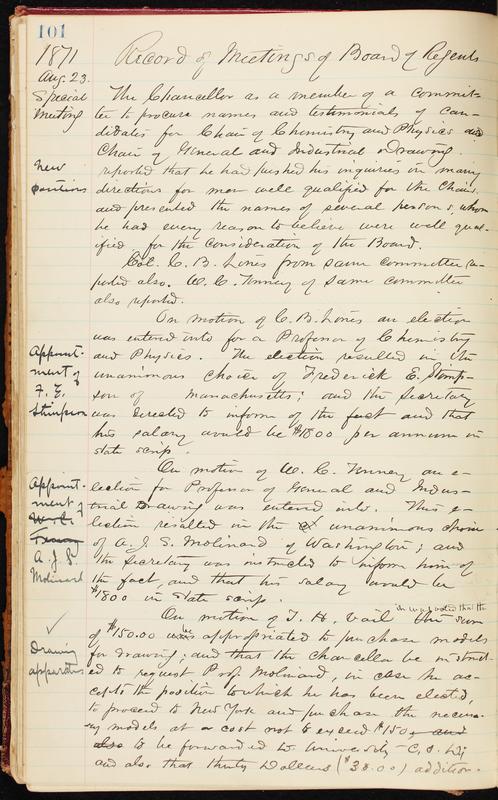 101
1871
Record of Meetings of Board of Regents
Aug. 23.
Special
Meeting
The Chancellor as a member of a commit-
tee to procure names and testimonials of can-
didates for Chair of Chemistry and Physics and
Chair of General and Industrial Drawing.
New
positions
reported that he had pushed his inquiries in many
directions for men well qualified for the Chairs,
and presented the names of several persons, whom
he had every reason to believe were well qual-
ified for the consideration of the Board.
Col. C. B. Lines from same committee re-
ported also. W. C. Tenney of same committee
also reported.
On motion of C. B. Lines an election
was entered into for a Professor of Chemistry
Appoint-
ment of
F. E.
Stimpson
and Physics. The election resulted in the
unanimous choice of Frederick E. Stimp-
son of Massachusetts; and the Secretary
was directed to inform of the fact and that
his salary would be $1800 per annum in
state scrip.
On motion of W. C. Tenney an e-
Appoint-
ment of
A. J. S.
Molinard
lection for Professor of General and Indus-
trial Drawing was entered into. This e-
lection resulted in the unanimous choice
of A. J. S. Molinard of Washington; and
the Secretary was instructed to inform him of
the fact, and that his salary would be
$1800 in state scrip.
it was voted that the
On motion of T. H. Vail the sum
✓
Drawing
apparatus
of $150.00 be appropriated to purchase models
for drawing; and that the Chancellor be instruct-
ed to request Prof. Molinard, in case he ac-
cepts the position to which he has been elected,
to proceed to New York and purchase the necess-
ary models at a cost not to exceed $150, and
also to be forwarded to University C. O. D;
and also that thirty Dollars ($30.00) addition-